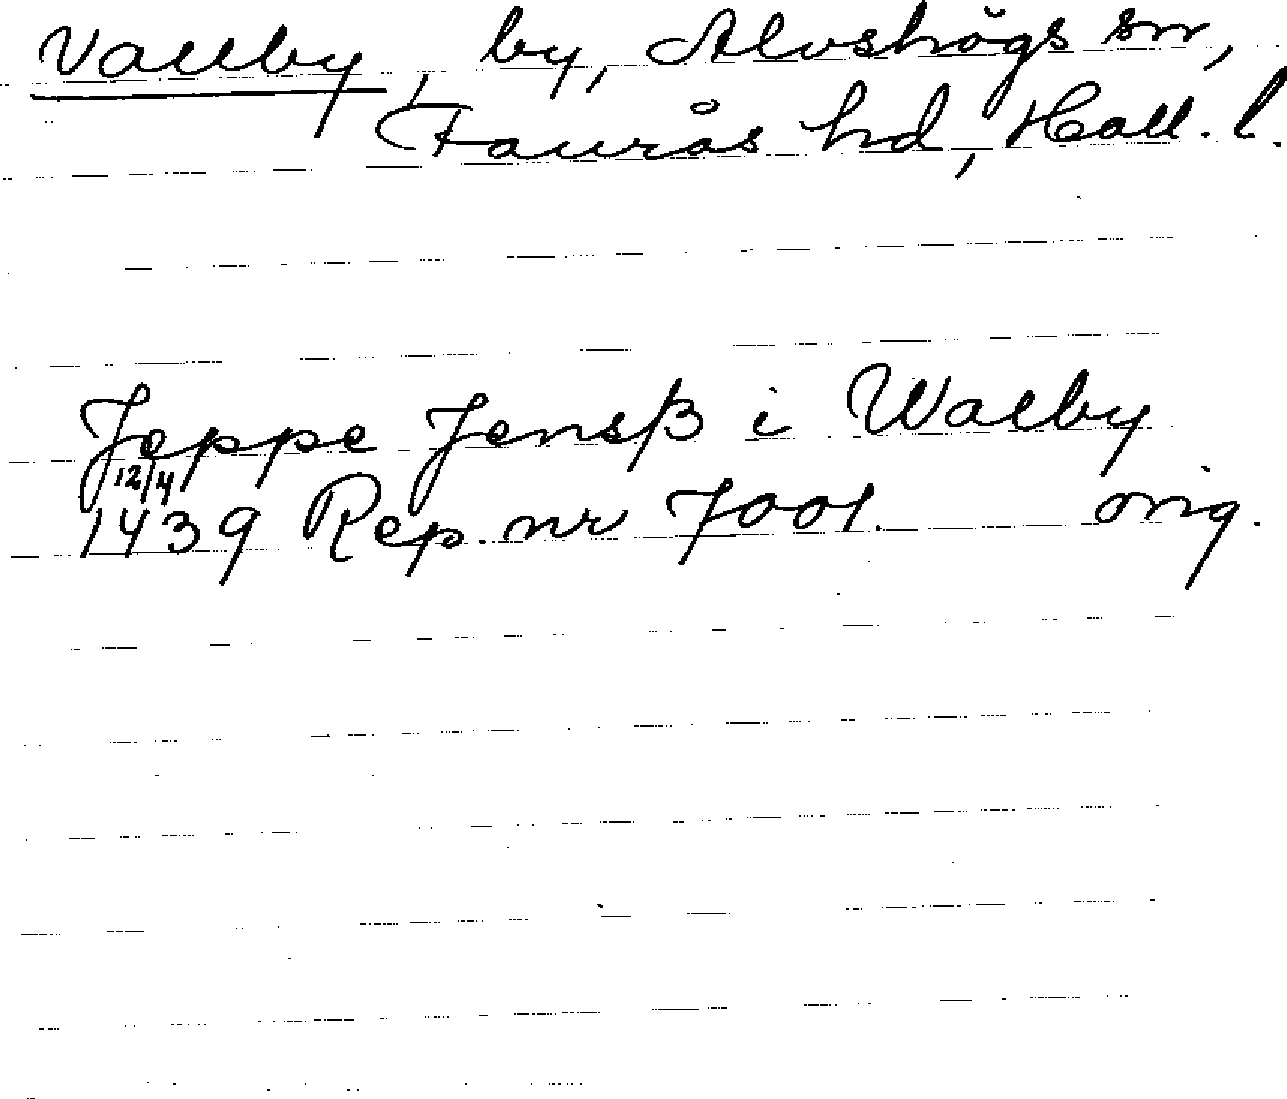 Vallby, by, Alvshögs sn,
Faurås hd, Hall. l.
Jeppe Jensß i Walby
12/4
1439 Rep. nr 7001. orig.